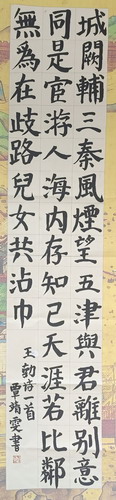 城闕輔三秦風煙望五津與君離別意
同是宦游人海内存知己天涯若比鄰
無為在歧路兒女共沾巾
王勃诗一首
覃靖雯書